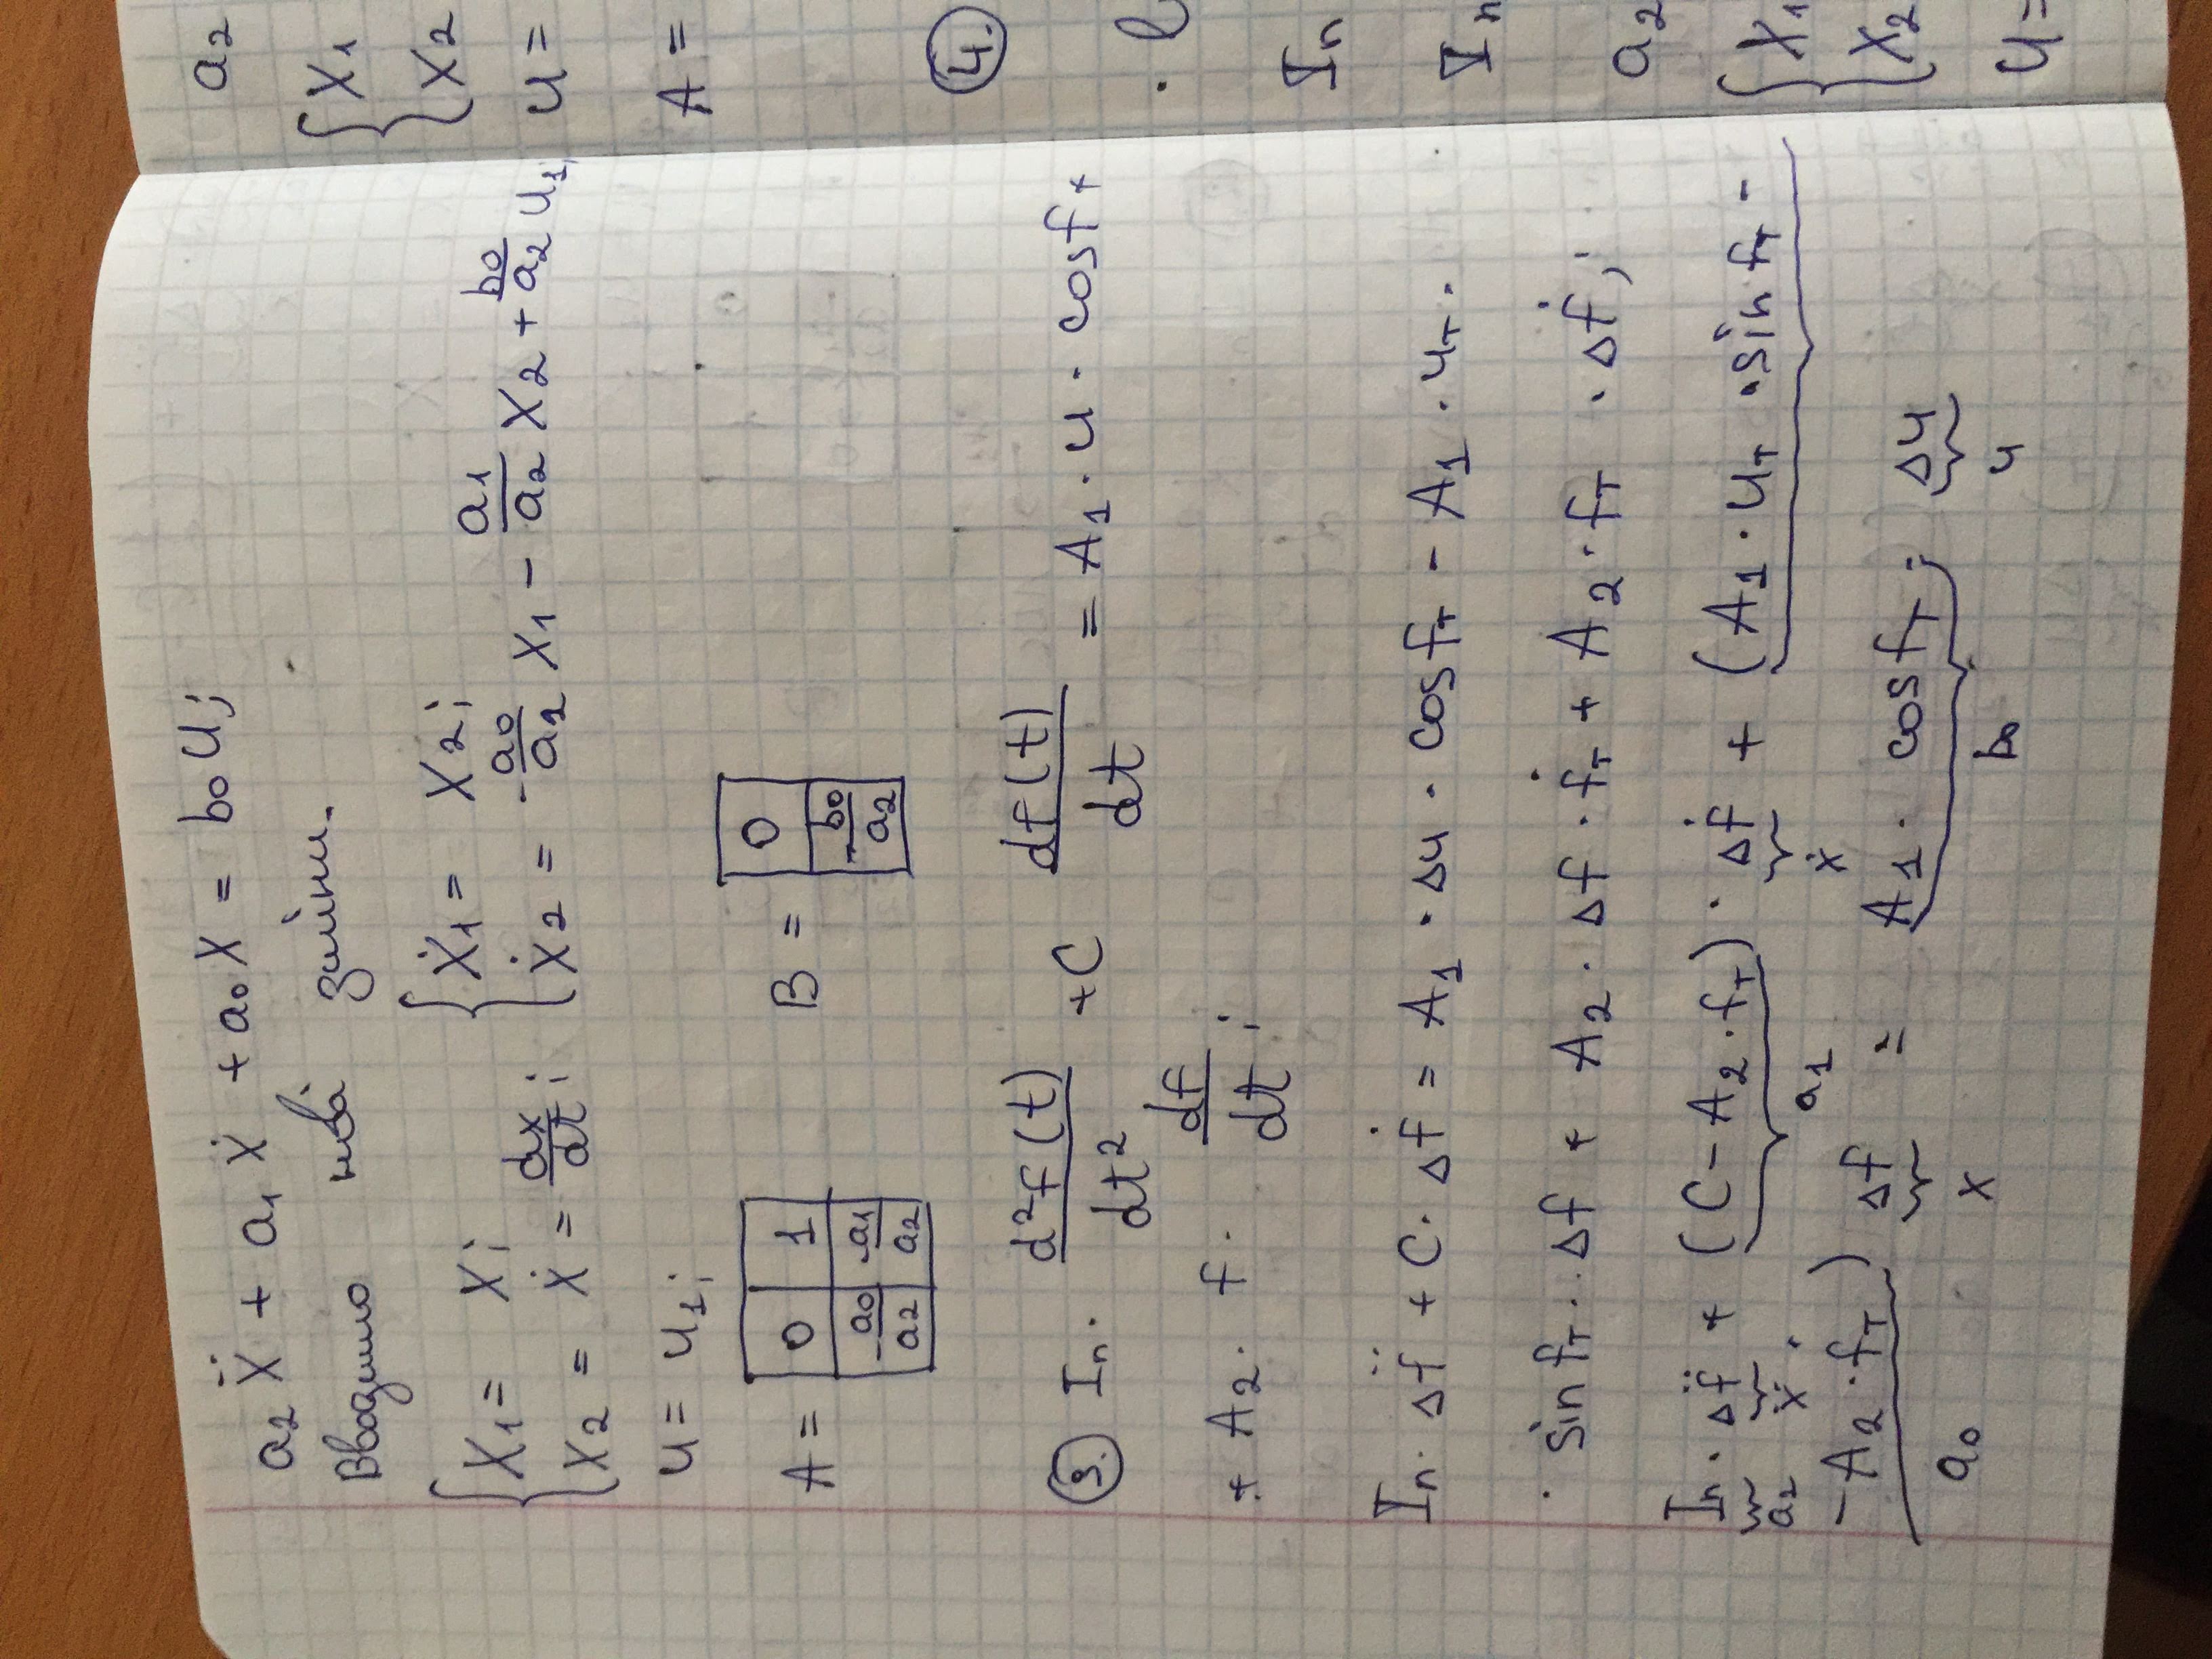 a₂ẍ + a₁ẋ + a₀x = b₀u;
Вводимо нові змінні.
{ x₁ = x; { ẋ₁ = x₂;
x₂ = ẋ = dx/dt; ẋ₂ = -a₀/a₂ x₁ - a₁/a₂ x₂ + b₀/a₂ u₁;
u = u₁;
A = 0 1 B = 0
-a₀/a₂ -a₁/a₂ -b₀/a₂
3. Iₙ · d²f(t)/dt² + C df(t)/dt = A₁ · u · cosf +
+ A₂ · f · df/dt;
Iₙ · Δf̈ + C · Δḟ = A₁ · Δu · cosfₜ - A₁ · uₜ ·
· sinfₜ · · Δf + A₂ · Δf · ḟₜ + A₂ · fₜ · Δḟ;
Iₙ · Δf̈ + (C - A₂ · fₜ) · Δḟ + (A₁ · uₜ · sinfₜ -
a₂ ẍ a₁ ẋ
- A₂ · fₜ) Δf = A₁ · cosfₜ · Δu
a₀ x b₀ u
a₂
{ x₁
x₂
u =
A =
4.
Iₙ
Iₙ
a₂
{ x₁
x₂
u =